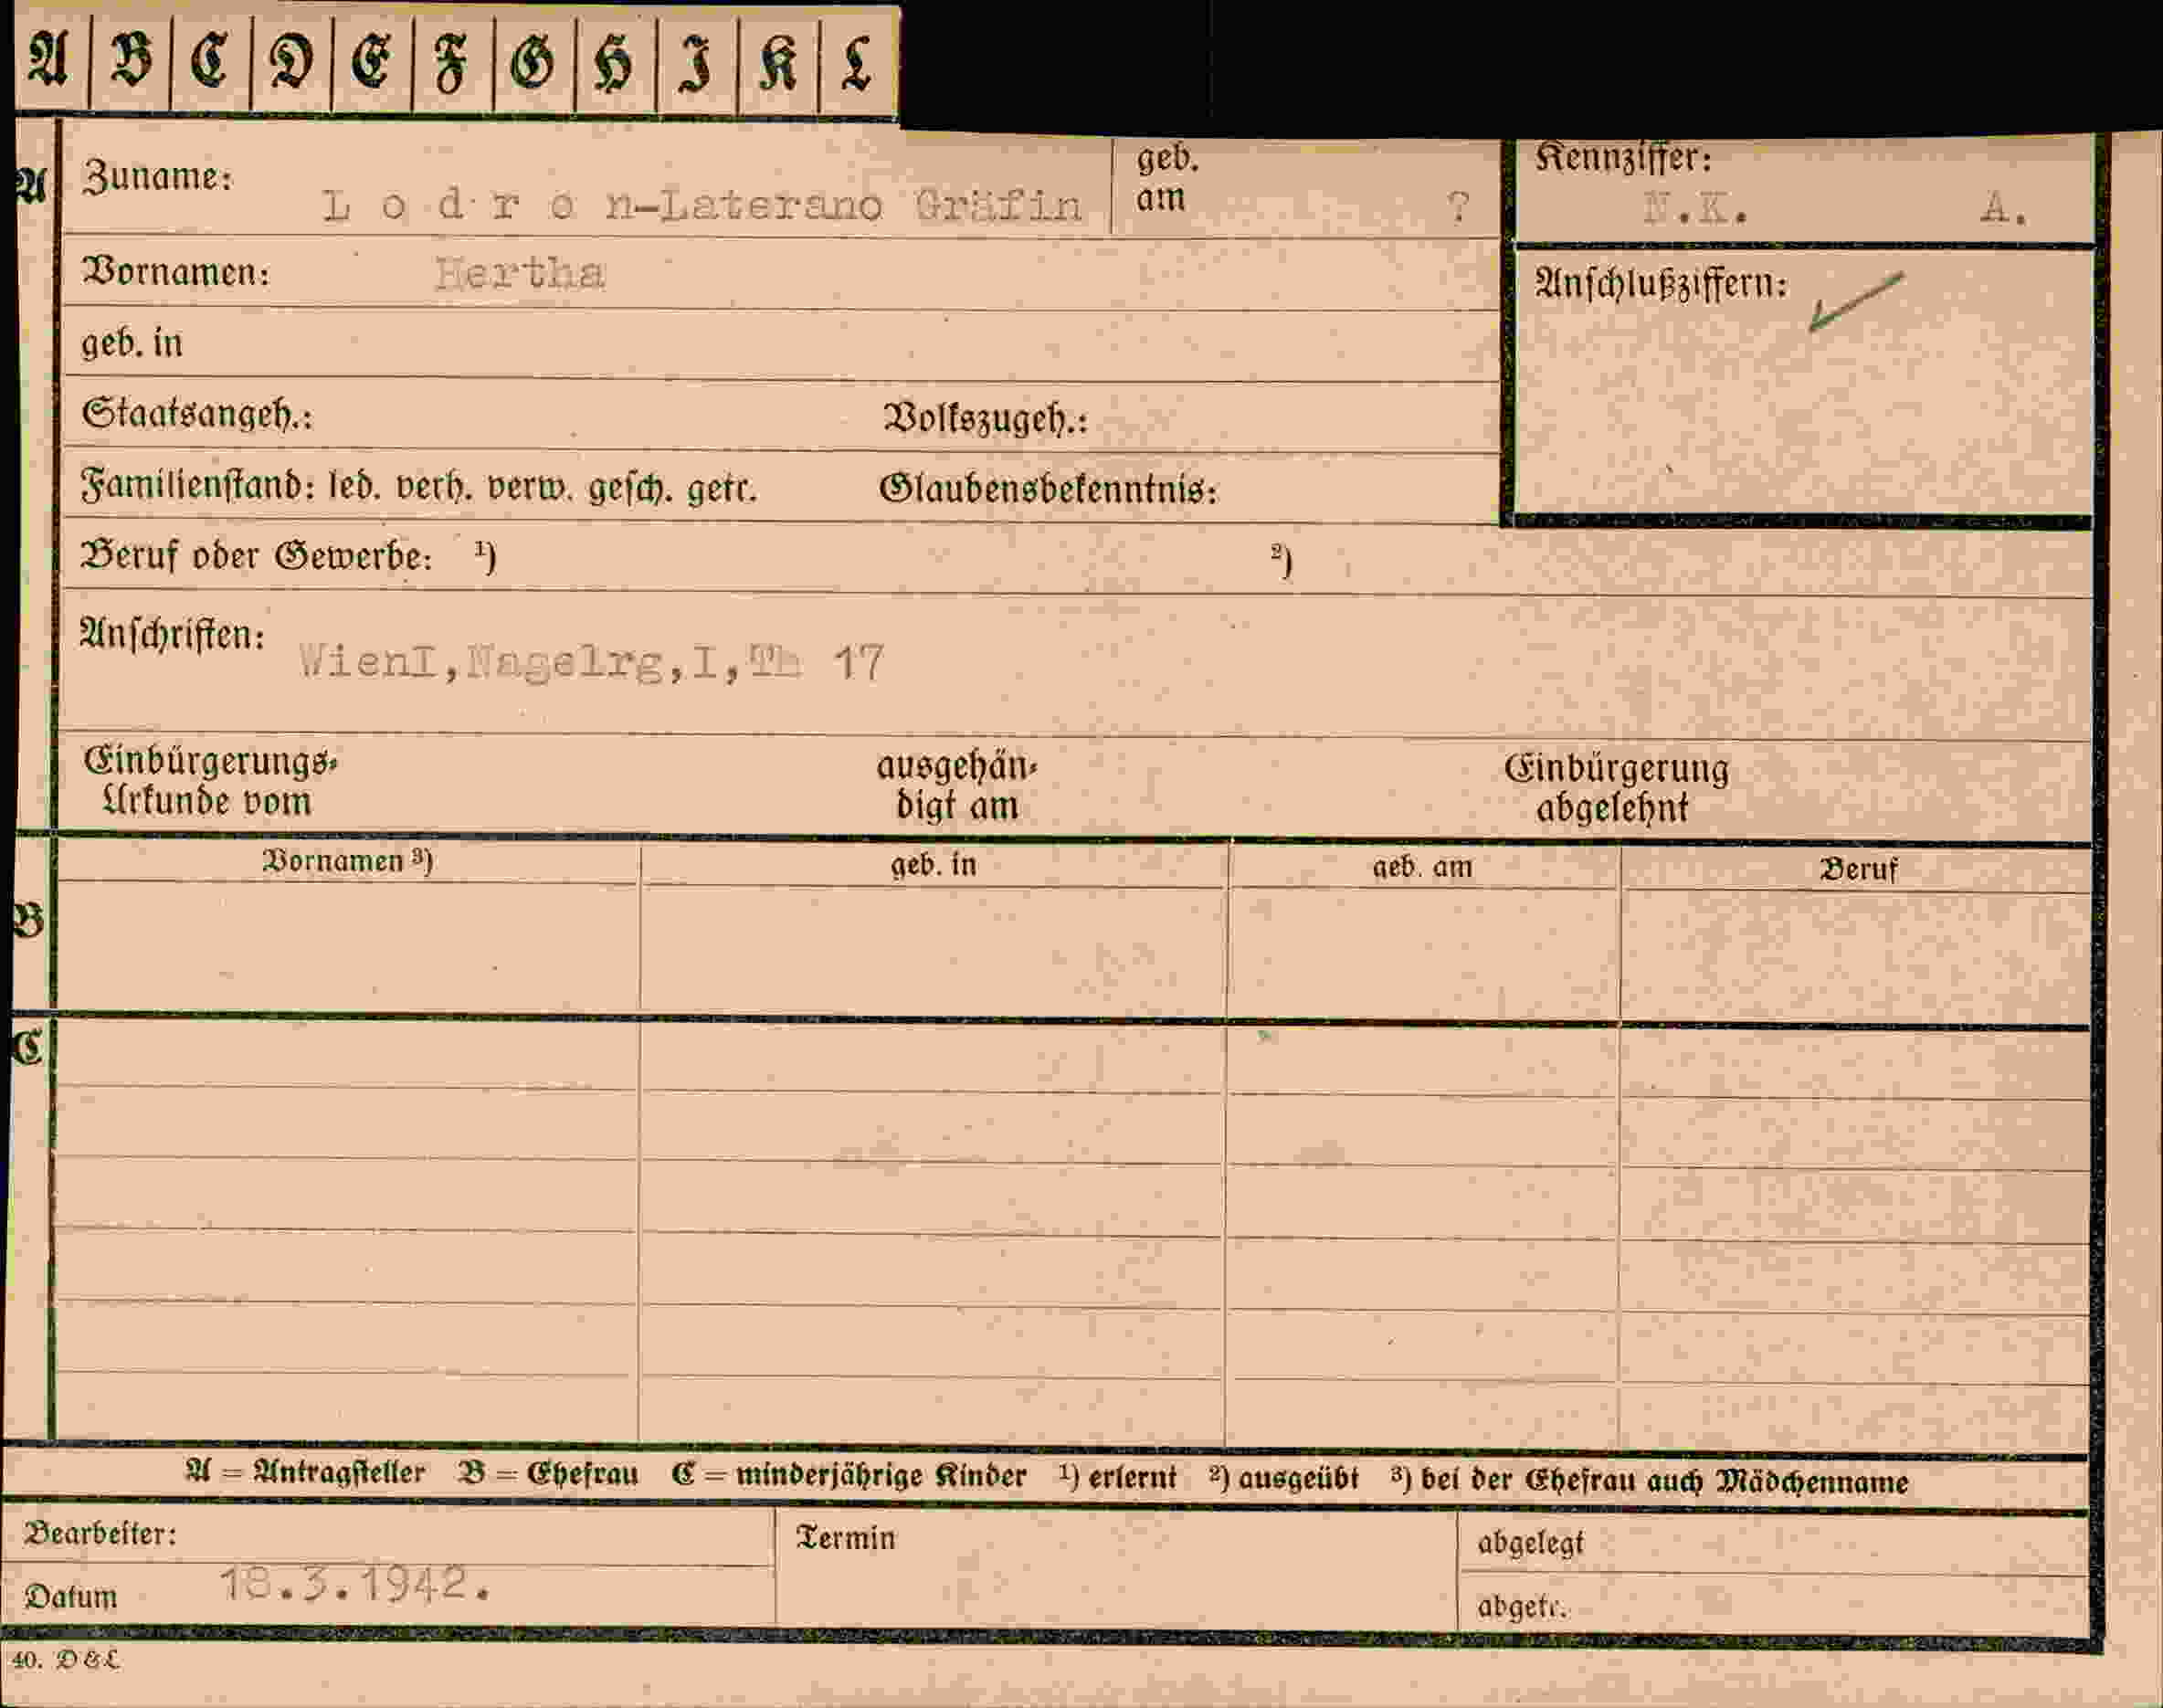 A B C D E F G H I K L
A Zuname: L o d r o n-Laterano Gräfin geb. am ? Kennziffer: N.K. A.
Vornamen: Hertha Anschlußziffern:
geb. in
Staatsangeh.: Volkszugeh.:
Familienstand: led. verh. verw. gesch. getr. Glaubensbekenntnis:
Beruf oder Gewerbe: ¹) ²)
Anschriften: WienI,Nagelrg,I,Th 17
Einbürgerungs- ausgehän- Einbürgerung
Urkunde vom digt am abgelehnt
Vornamen ³) geb. in geb. am Beruf
B
C
A = Antragsteller B = Ehefrau C = minderjährige Kinder ¹) erlernt ²) ausgeübt ³) bei der Ehefrau auch Mädchenname
Bearbeiter: Termin abgelegt
Datum 18.3.1942. abgetr.
40. D & L